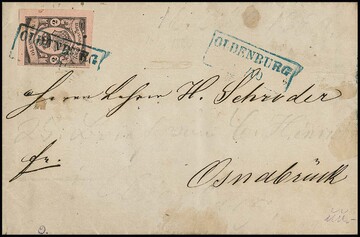 OLDENBURG
OLDENBURG
Herrn Lehrer H. Schröder
fr.
Osnabrück